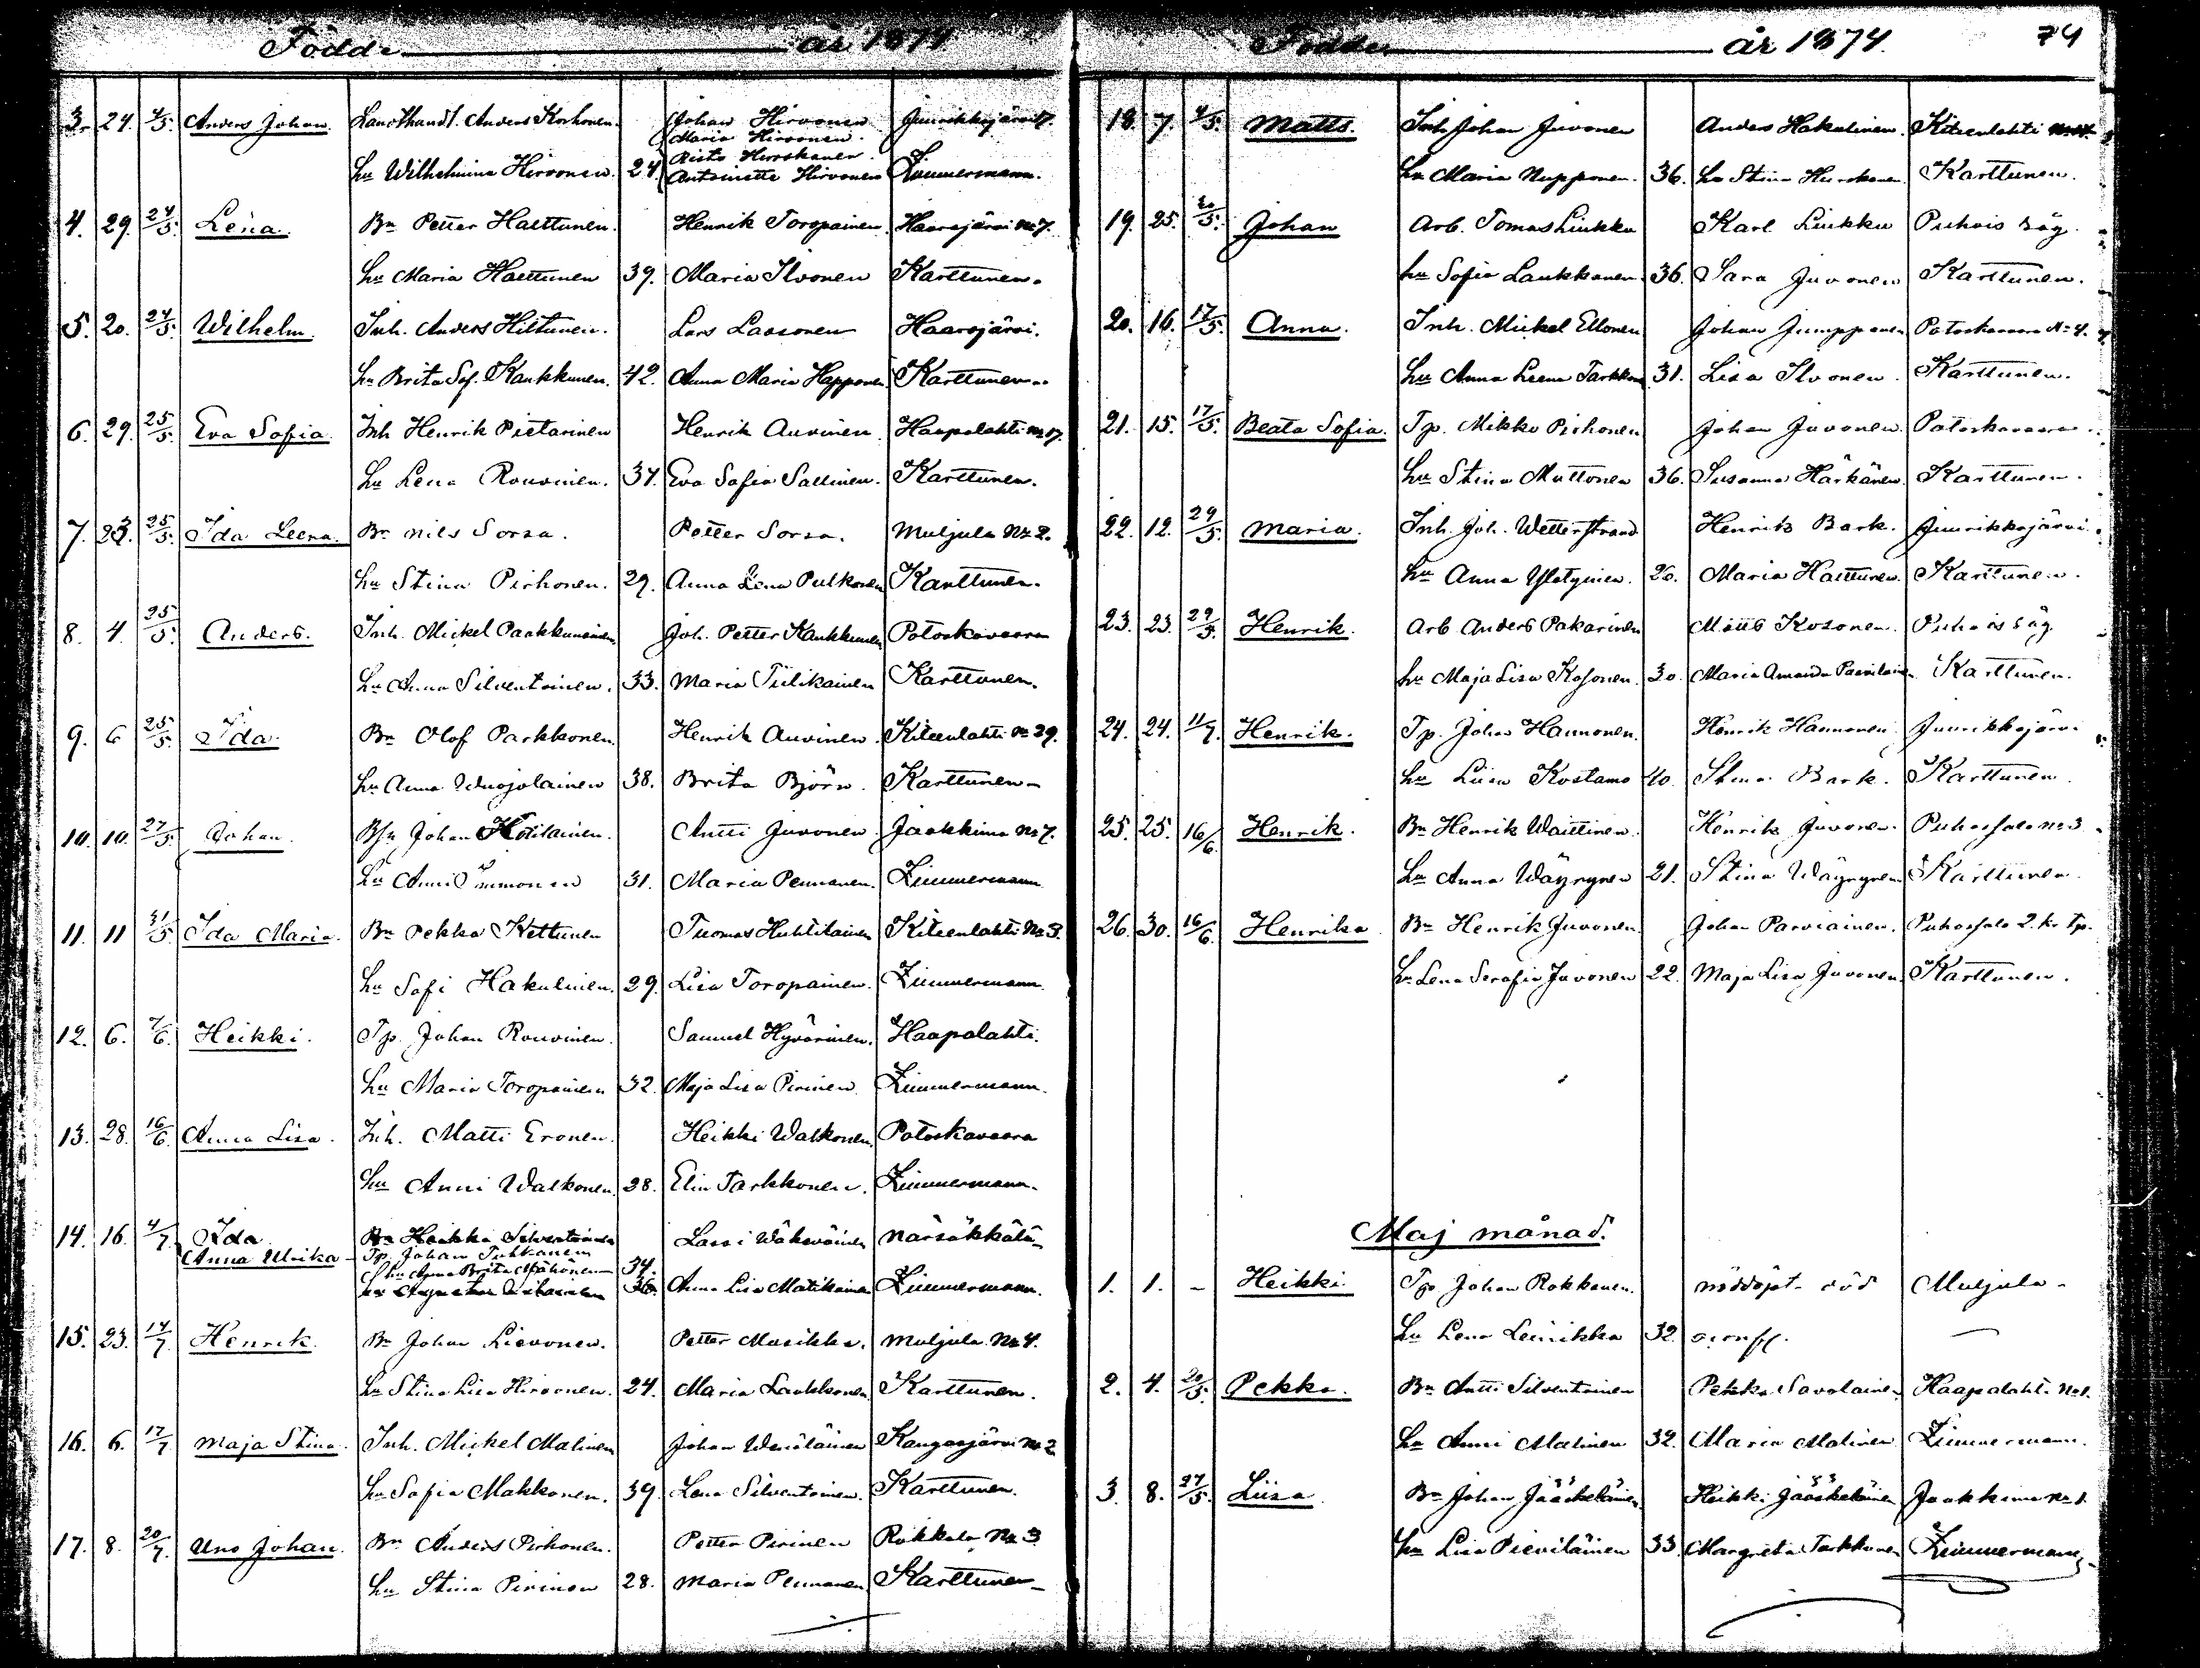 Födde år 1874
3. 24. 4/5. Anders Johan. Landthandl. Anders Korhonen. Johan Hirvonen Juurikkajärvi 17.
Maria Hirvonen.
Risto Hirvonen.
Hu Wilhelmina Hirvonen. 24 Antoinette Hirvonen Zimmermann.
4. 29. 24/5. Lena. Bn Petter Halttunen. Henrik Toropainen Haarajärvi No 7.
Hu Maria Halttunen 39. Maria Ilvonen Karttunen.
5. 20. 24/5. Wilhelm. Inh. Anders Hiltunen. Lars Laasonen Haarajärvi.
Hu Brita Sof. Kaukkunen. 42. Anna Maria Happonen Karttunen.
6. 29. 25/5. Eva Sofia. Inh Henrik Pietarinen Henrik Auvinen. Haapalahti No 17.
Hu Lena Rouvinen. 37. Eva Sofia Sallinen. Karttunen.
7. 23. 25/5. Ida Leena. Bn Nils Sorsa. Petter Sorsa. Muljula No 2.
Hu Stina Pirhonen. 29. Anna Lena Pulkonen Karttunen.
8. 4. 25/5. Anders. Inh. Mickel Paakkunainen Joh. Petter Kaukkunen Potoskavaara
Hu Anna Silventoinen. 33. Maria Tiilikainen Karttunen.
9. 6 25/5. Ida. Bn Olof Parkkonen. Henrik Auvinen. Kiteenlahti No 29.
Hu Anna Wuojolainen 38. Brita Björn. Karttunen
10. 10. 27/5. Johan. Johan Kotilainen. Antti Juvonen Jaakkima No 7.
Hu Anni Immonen 31. Maria Pennanen. Zimmermann
11. 11 31/5. Ida Maria. Bn Pekka Kettunen Tuomas Huhtilainen Kiteenlahti No 3.
Hu Sofi Hakulinen. 29. Lisa Toropainen. Zimmermann.
12. 6. 7/6. Heikki. Tp. Johan Rouvinen. Samuel Hyvärinen. Haapalahti.
Hu Maria Toropainen 32. Maja Lisa Pirinen. Zimmermann.
13. 28. 16/6. Anna Lisa. Inh. Matti Eronen. Heikki Walkonen. Potoskavaara
Hu Anni Walkonen. 38. Elin Tarkkonen. Zimmermann.
14. 16. 4/7. Ida Bn Heikki Silventoinen Lassi Wäkeväinen Närsäkkälä
Anna Ulrika Tp. Johan Tukkanen
Hu Anna Brita 34.
36. Anna Lisa Matikainen Zimmermann.
15. 23. 14/7. Henrik. Bn Johan Lievonen. Petter Musikka. Muljula No 4.
Hu Stina Lisa Hirvonen. 24. Maria Laukkonen Karttunen.
16. 6. 17/7. Maja Stina. Inh. Mickel Malinen Johan Kangasjärvi No 2
Hu Sofia Makkonen. 39. Lena Silventoinen. Karttunen.
17. 8. 20/7. Uno Johan. Bn Anders Pirhonen. Petter Pirinen Rokkala No 3
Hu Stina Pirinen 28. Maria Pennanen Karttunen
Födde år 1874. 74
18. 7. 4/5. Matts. Inh Johan Juvonen Anders Hakulinen. Kiteenlahti
Hu Maria Nupponen. 36. Hu Stina Karttunen.
19. 25. 20/5. Johan Arb. Tomas Liukku Karl Liukku Puhois såg.
Hu Sofia Laukkanen. 36. Sara Juvonen Karttunen.
20. 16. 17/5. Anna. Inh. Mickel Ellonen Johan Jumppanen Potoskavaara No 4.
Hu Anna Leena Tarkkonen 31. Lisa Ilvonen. Karttunen.
21. 15. 17/5. Beata Sofia. Tp. Mikko Pirhonen Johan Juvonen. Potoskavaara
Hu Stina Muttonen 36. Susanna Härkänen. Karttunen.
22. 12. 29/5. Maria. Inh. Joh. Wetterstrand Henrik Bark. Juurikkajärvi.
Hu Anna 26. Maria Halttunen. Karttunen.
23. 23. 29/5. Henrik. Arb Anders Pakarinen Matts Kosonen. Puhois såg
Hu Maja Lisa Kosonen. 30. Maria Amanda Karttunen.
24. 24. 11/7. Henrik. Tp. Johan Hannonen. Henrik Hannonen. Juurikkajärvi
Hu Liisa Kostamo 40. Stina Bark. Karttunen
25. 25. 16/6. Henrik. Bn Henrik Waittinen. Henrik Juvonen. Puhossalo No 3
Hu Anna Wäyrynen 21. Stina Wäyrynen Karttunen.
26. 30. 16/6. Henrika Bn Henrik Juvonen. Johan Parviainen. Puhossalo 2. kr. Tp.
Hu Lena Serafia Juvonen 22. Maja Lisa Juvonen. Karttunen.
Maj månad.
1. 1. - Heikki. Tp Johan Rokkanen. nöddöpt död Muljula
Hu Lena Leinikka 32.
2. 4. 20/5. Pekka. Bn Antti Silventoinen Pekka Savolainen. Haapalahti No 1.
Hu Anni Malinen 32. Maria Malinen Zimmermann.
3. 8. 27/5. Liisa. Bn Johan Jääskeläinen Heikki Jääskeläinen Jaakkima No 1.
Hu Lisa Pieviläinen 33. Margreta Tarkkonen Zimmermann.